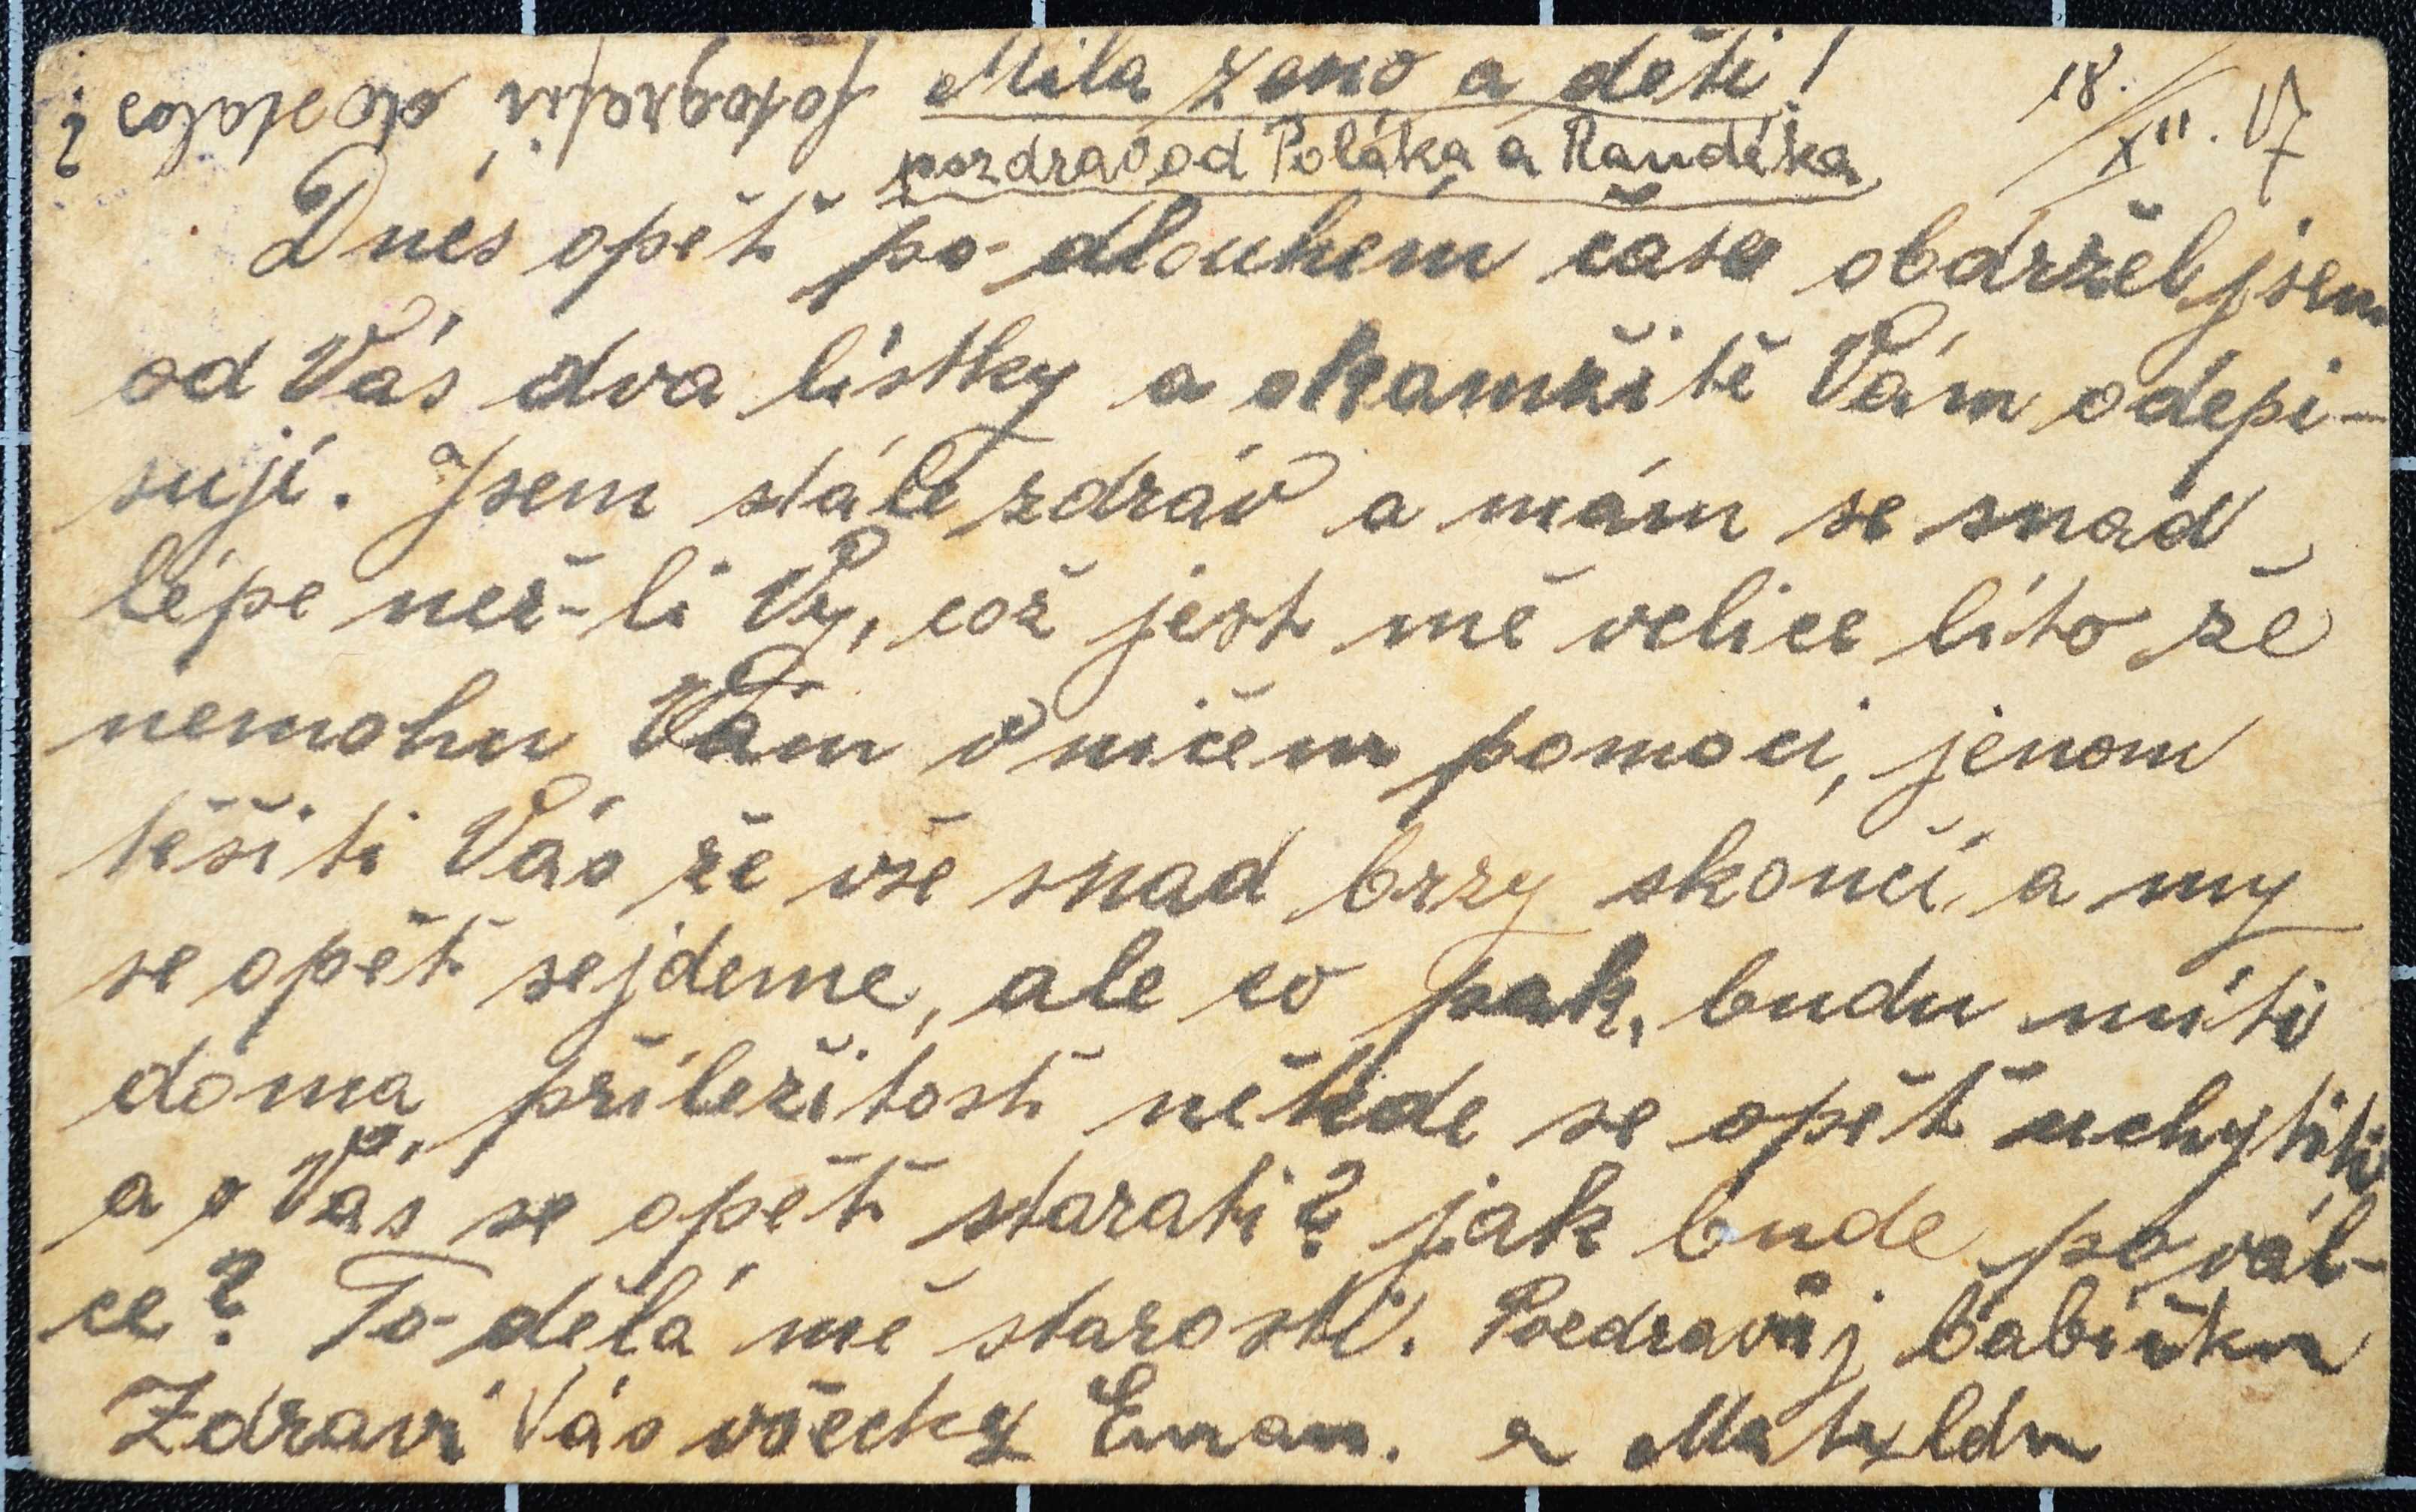 Milá ženo a děti! 18./XII. 17
pozdrav od Poláka a Randáka
fotografii dostalas?
Dnes opět po dlouhem čase obdržel jsem
od Vás dva lístky a okamžitě Vám odepi-
suji. Jsem stále zdráv a mám se snad
lépe než-li Vy, což jest mě velice líto že
nemohu Vám v ničem pomoci, jenom
těšiti Vás že vše snad brzy skončí a my
se opět sejdeme, ale co pak, budu míti
doma příležitost někde se opět uchytiti
a o Vás se opět starati? jak bude po vál-
ce? To dělá mě starosti. Pozdravuj babičku
Zdraví Vás všecky Eman. a Matyldu